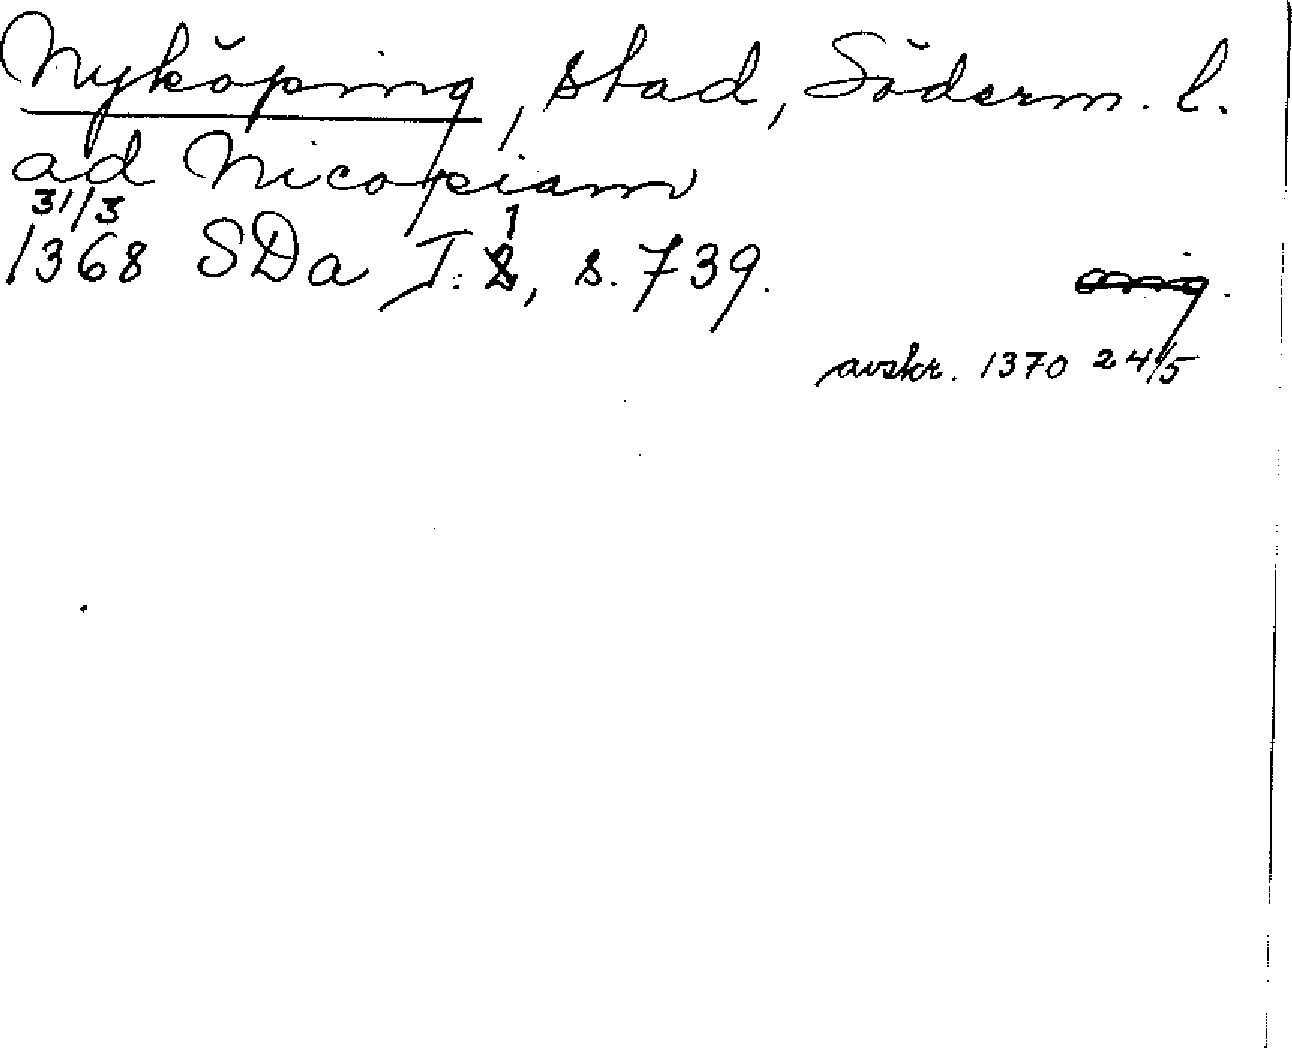 Nyköping, stad, Söderm. l.
ad Nicopiam
31/3
1368 SDa I:1, s. 739.
orig.
avskr. 1370 24/5